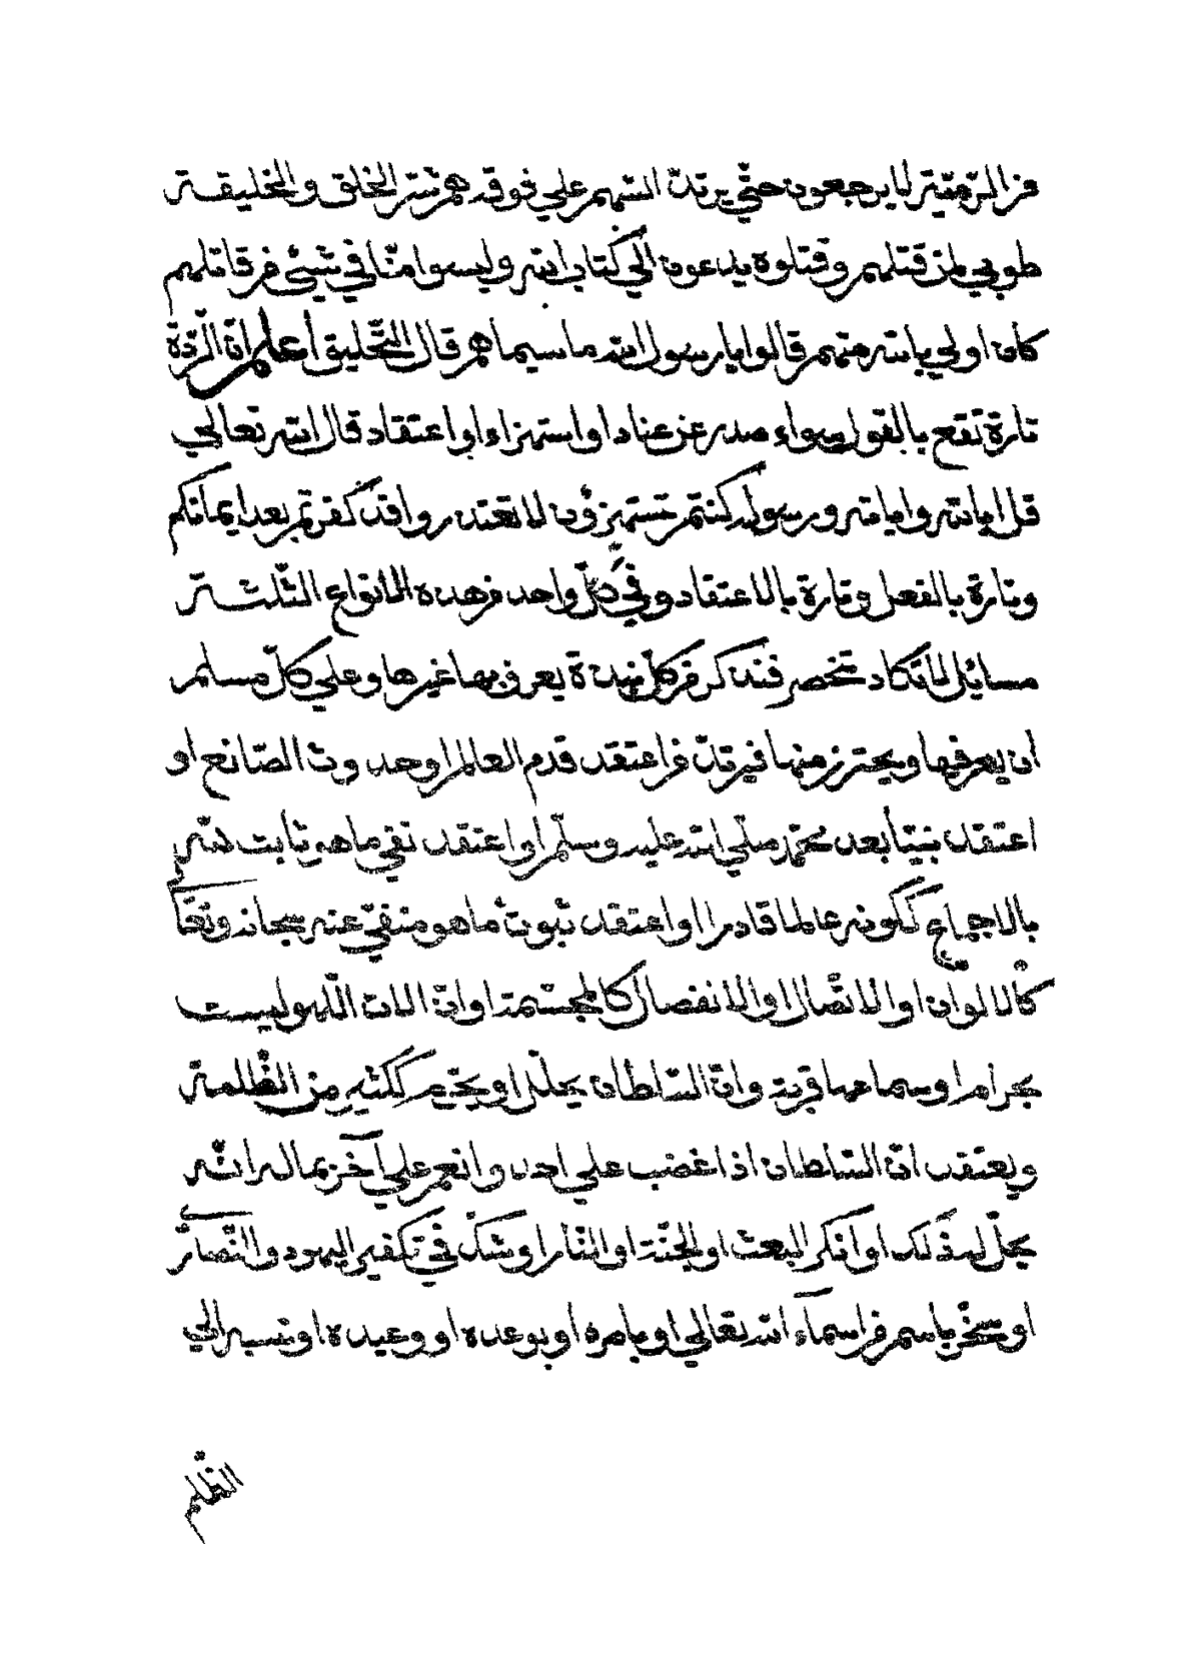 من الرّميّة لا يرجعون حتّى يرتدّ السّهم علي فوقه هم شرّ الخلق والخليقة
طوبي لمن قتلهم وقتلوه يدعون الي كتاب الله وليسوا منّا في شيئ من قاتلهم
كان اولي بالله منهم قالوا يا رسول الله ما سيماهم قال التّحليق أعلم انّ الرّدّة
تارة تقع بالقول سواء صدر عن عناد او استهزاء او اعتقاد قال الله تعالي
قل ابالله واياته ورسوله كنتم تستهزؤن لا تعتذروا قد كفرتم بعد ايمانكم
وتارة بالفعل وتارة بالاعتقاد وفي كلّ واحد من هذه الانواع الثّلثة
مسائل لا تكاد تحصر فنذكر من كلّ نبذة يعرف بها غيرها وعلي كلّ مسلم
ان يعرفها ويحترز منها فيرتدّ من اعتقد قدم العالم او حدوث الصّانع او
اعتقد نبيّا بعد محمّد صلّي الله عليه وسلّم او اعتقد نفي ما هو ثابت لله
بالاجماع ككونه عالما قادرا او اعتقد ثبوت ما هو منفيّ عنه سبحانه وتعا
كالالوان او الاتّصال او الانفصال كالمجسّمة او انّ الات اللّهو ليست
بحرام او سماعها قربة وانّ السّلطان يحلّل او يحرّم ككثير من الظّلمة
ويعتقد انّ السّلطان اذا غضب علي احد وانعم علي آخر بماله انّه
يحلّ له ذلك او انكر البعث او الجنّة او النّار او شكّ في تكفير اليهود والنّصار
او سخر باسم من اسمآء الله تعالي او بامره او بوعده او وعيده او نسبه الي
الظّلم